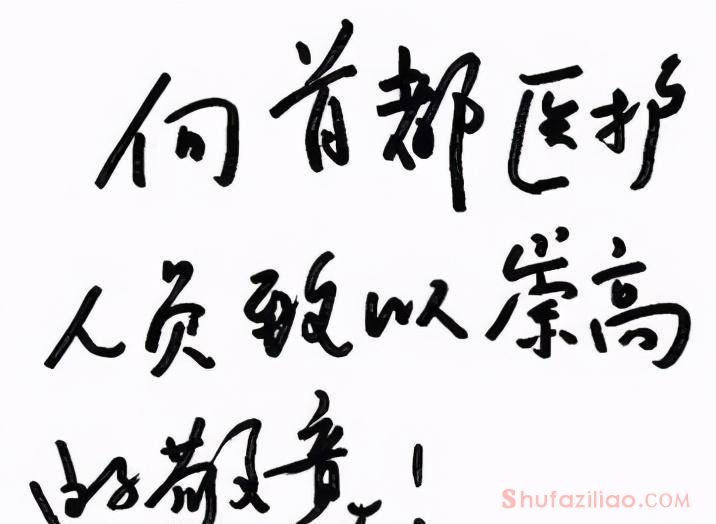 向首都医护
人员致以崇高
的敬意!
Shufaziliao.COM